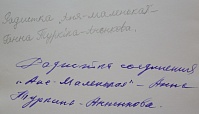 Радистка "Аня-маленькая"-
Анна Туркина-Акентова.
Радистка соединения
"Аня-Маленькая" - Анна
Туркина-Акентьева.